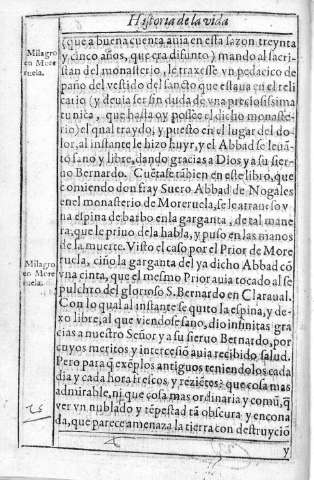 Historia de la vida
Milagro
en More
ruela.
(que a buena cuenta auia en esta sazon treynta
y cinco años, que era difunto) mando al sacris
tan del monasterio, le traxesse vn pedacico de
paño del vestido del sancto que estaua en el reli
cario (y deuia ser sin duda de vna preciosissima
tunica, que hasta oy possee el dicho monaste-
rio) el qual traydo, y puesto en el lugar del do-
lor, al instante le hizo huyr, y el Abbad se leuã-
tò sano y libre, dando gracias a Dios y a su sier-
uo Bernardo. Cuẽtase tãbien en este libro, que
comiendo don fray Suero Abbad de Nogales
en el monasterio de Moreruela, se le atrauesso v
na espina de barbo en la garganta, de tal mane
ra, que le priuo de la habla, y puso en las manos
de la muerte. Visto el caso por el Prior de More
Milagro
en More
ruela.
ruela, ciño la garganta del ya dicho Abbad cõ
vna cinta, que el mesmo Prior auia tocado al se
pulchro del glorioso S. Bernardo en Claraual.
Con lo qual al instante se quito la espina, y de-
xo libre, al que viendose sano, dio infinitas gra
cias a nuestro Señor y a su sieruo Bernardo, por
cuyos meritos y intercessiõ auia recibido salud.
Pero para q̃ exẽplos antiguos teniendolos cada
dia y cada hora frescos, y reziẽtes: que cosa mas
admirable, ni que cosa mas ordinaria y comũ, q̃
ver vn nublado y tẽpestad tã obscura y encona
da, que parece amenaza la tierra con destruyciõ
y